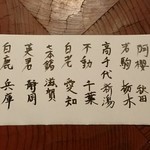 阿櫻 秋田
若駒 栃木
高千代 新潟
不動 千葉
白老 愛知
七本鎗 滋賀
英君 静岡
白鹿 兵庫